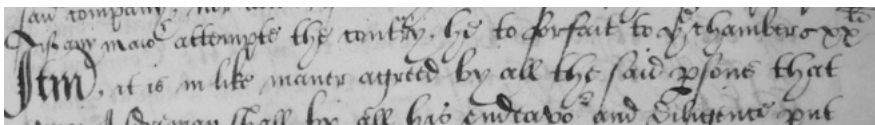 said company
If any man attempte the contry, he to forfait to ye chambere xxti
Itm, it is in like maner agreed by all the said psons that
Alderman shall by all his endeavor and diligence put